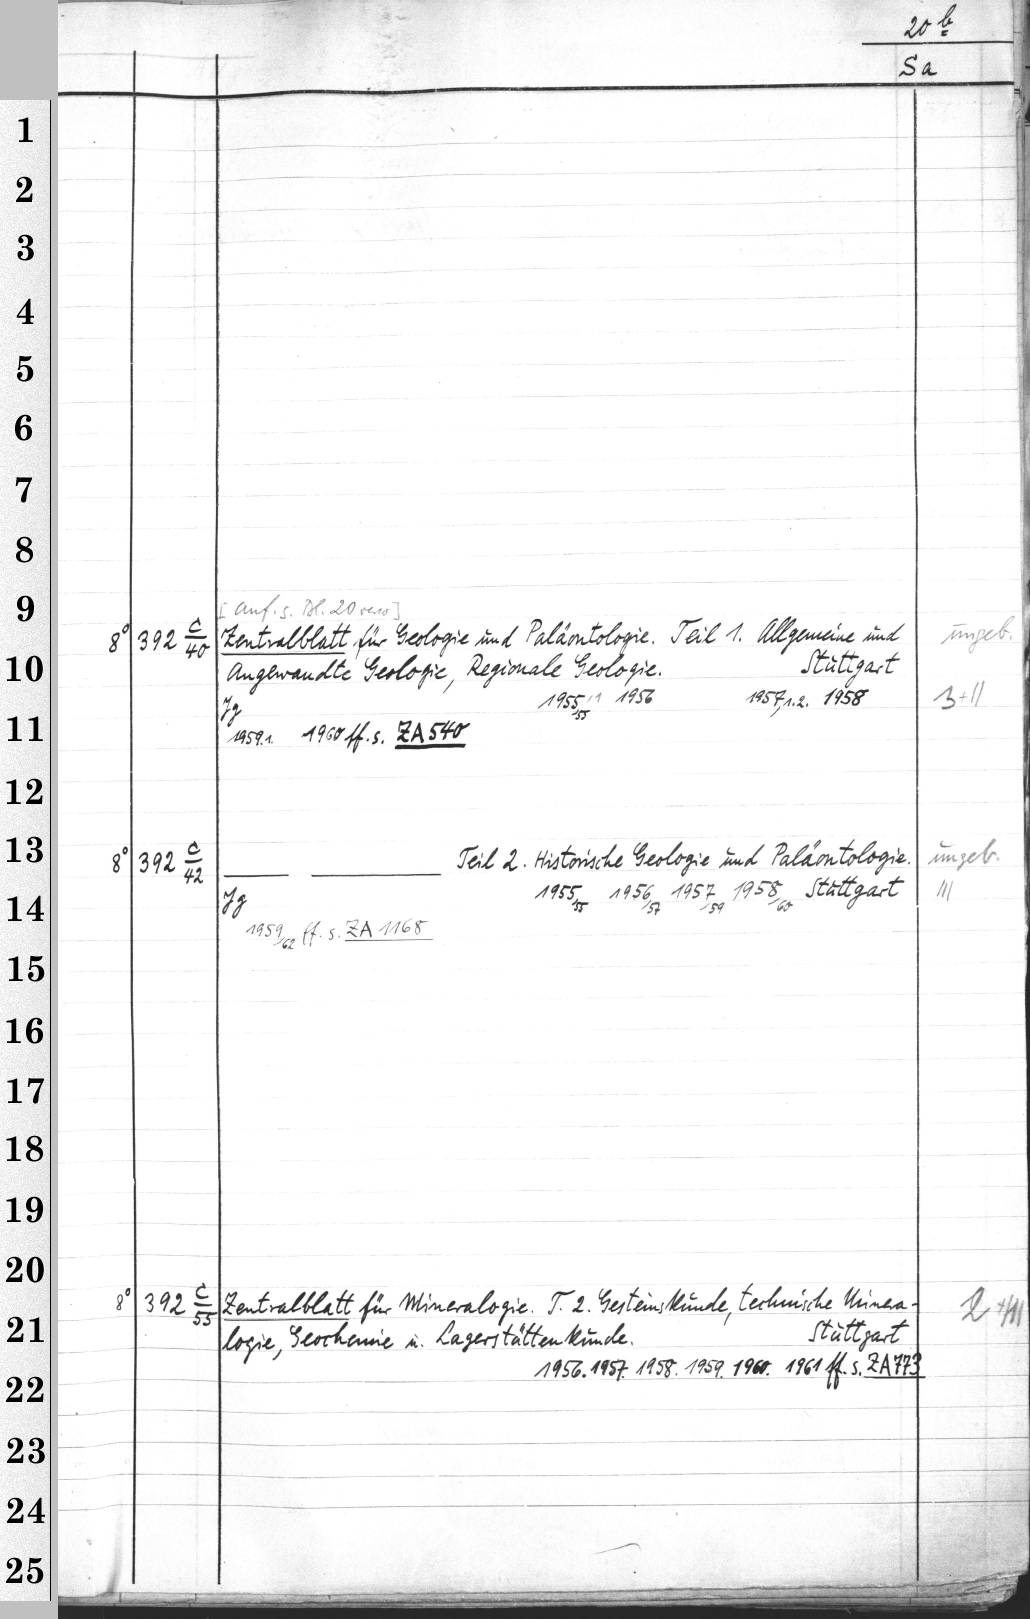 20 b
Sa
1
2
3
4
5
6
7
8
9
[Anf. s. Bl. 20 verso]
8° 392 c/40 Zentralblatt für Geologie und Paläontologie. Teil 1. Allgemeine und ungeb.
10
Angewandte Geologie, Regionale Geologie. Stuttgart
Jg 1955/55 1956 1957,1.2. 1958 3+II
11
1959.1. 1960 ff. s. ZA 540
12
13
8° 392 c/42 ——— ——— Teil 2. Historische Geologie und Paläontologie. ungeb.
14
Jg 1955/55 1956/57 1957/59 1958/60 Stuttgart III
1959/62 ff. s. ZA 1168
15
16
17
18
19
20
8° 392 c/55 Zentralblatt für Mineralogie. T. 2. Gesteinskunde, technische Minera-
21
logie, Geochemie u. Lagerstättenkunde. Stuttgart
22
1956. 1957. 1958. 1959. 1960. 1961 ff. s. ZA 773
23
24
25